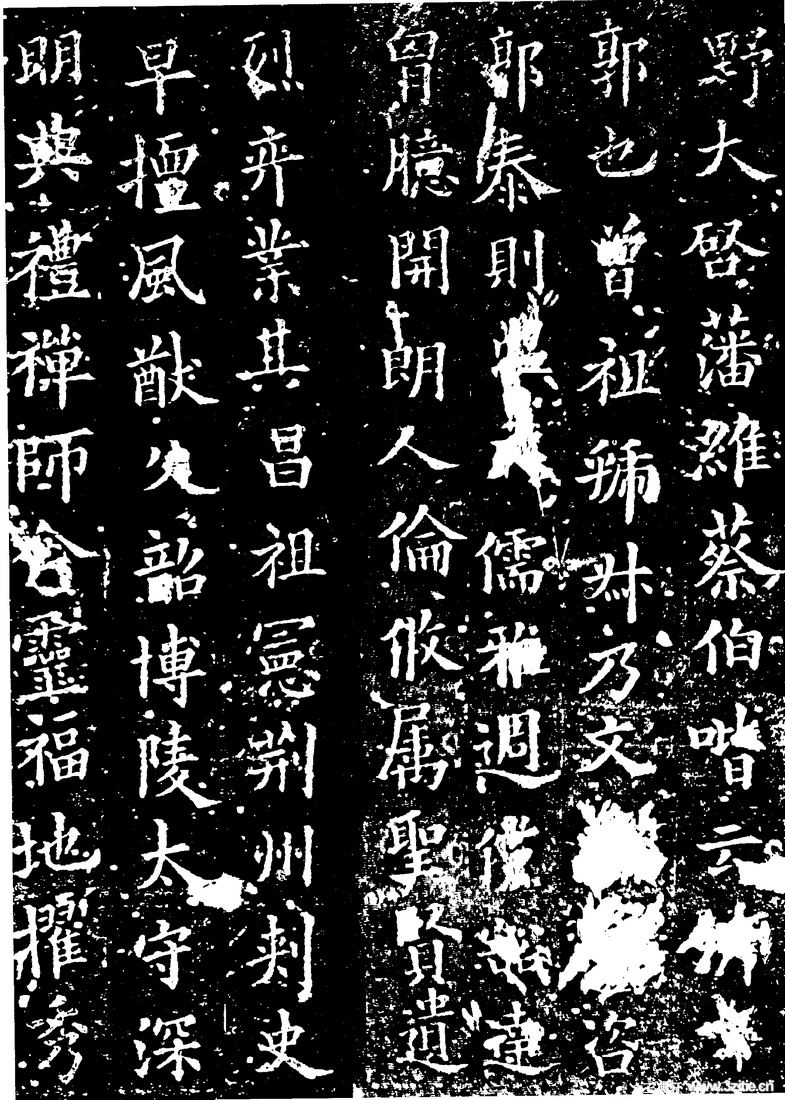 野大啓藩維蔡伯喈云
郭也曾祖虢叔乃文咨
郭泰則儒雅週達
胷臆開朗人倫攸属聖賢遺
烈弈業其昌祖憲荊州刺史
早擅風猷父韶博陵太守深
明典禮禪師含靈福地擢秀
www.3zitie.cn